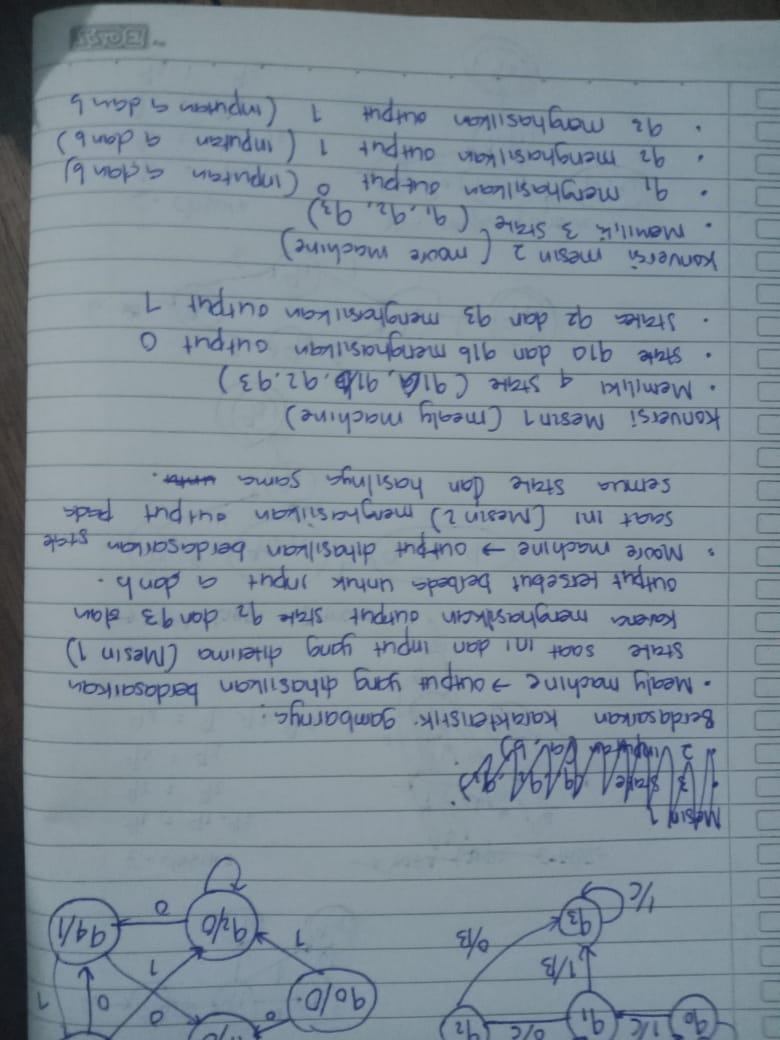 q0 1/C q1 0/C q2
1/B 0/B
1/C q3
q0/0 0 0 0 1
1 1
q2/0 0 q4/1
Mesin 1
3 state (q1, q2, q3)
2 inputan (a, b)
Berdasarkan karakteristik gambarnya:
• Mealy machine → output yang dihasilkan berdasarkan
state saat ini dan input yang diterima (Mesin 1)
karena menghasilkan output state q2 dan q3 dan
output tersebut berbeda untuk input a dan b.
• Moore machine → output dihasilkan berdasarkan state
saat ini (Mesin 2) menghasilkan output pada
semua state dan hasilnya sama untu.
Konversi Mesin 1 (mealy machine)
• Memiliki 4 state (q1a, q1b, q2, q3)
• state q1a dan q1b menghasilkan output 0
• state q2 dan q3 menghasilkan output 1
Konversi mesin 2 (moore machine)
• Memiliki 3 state (q1, q2, q3)
• q1 menghasilkan output 0 (inputan a dan b)
• q2 menghasilkan output 1 (inputan a dan b)
• q3 menghasilkan output 1 (inputan a dan b